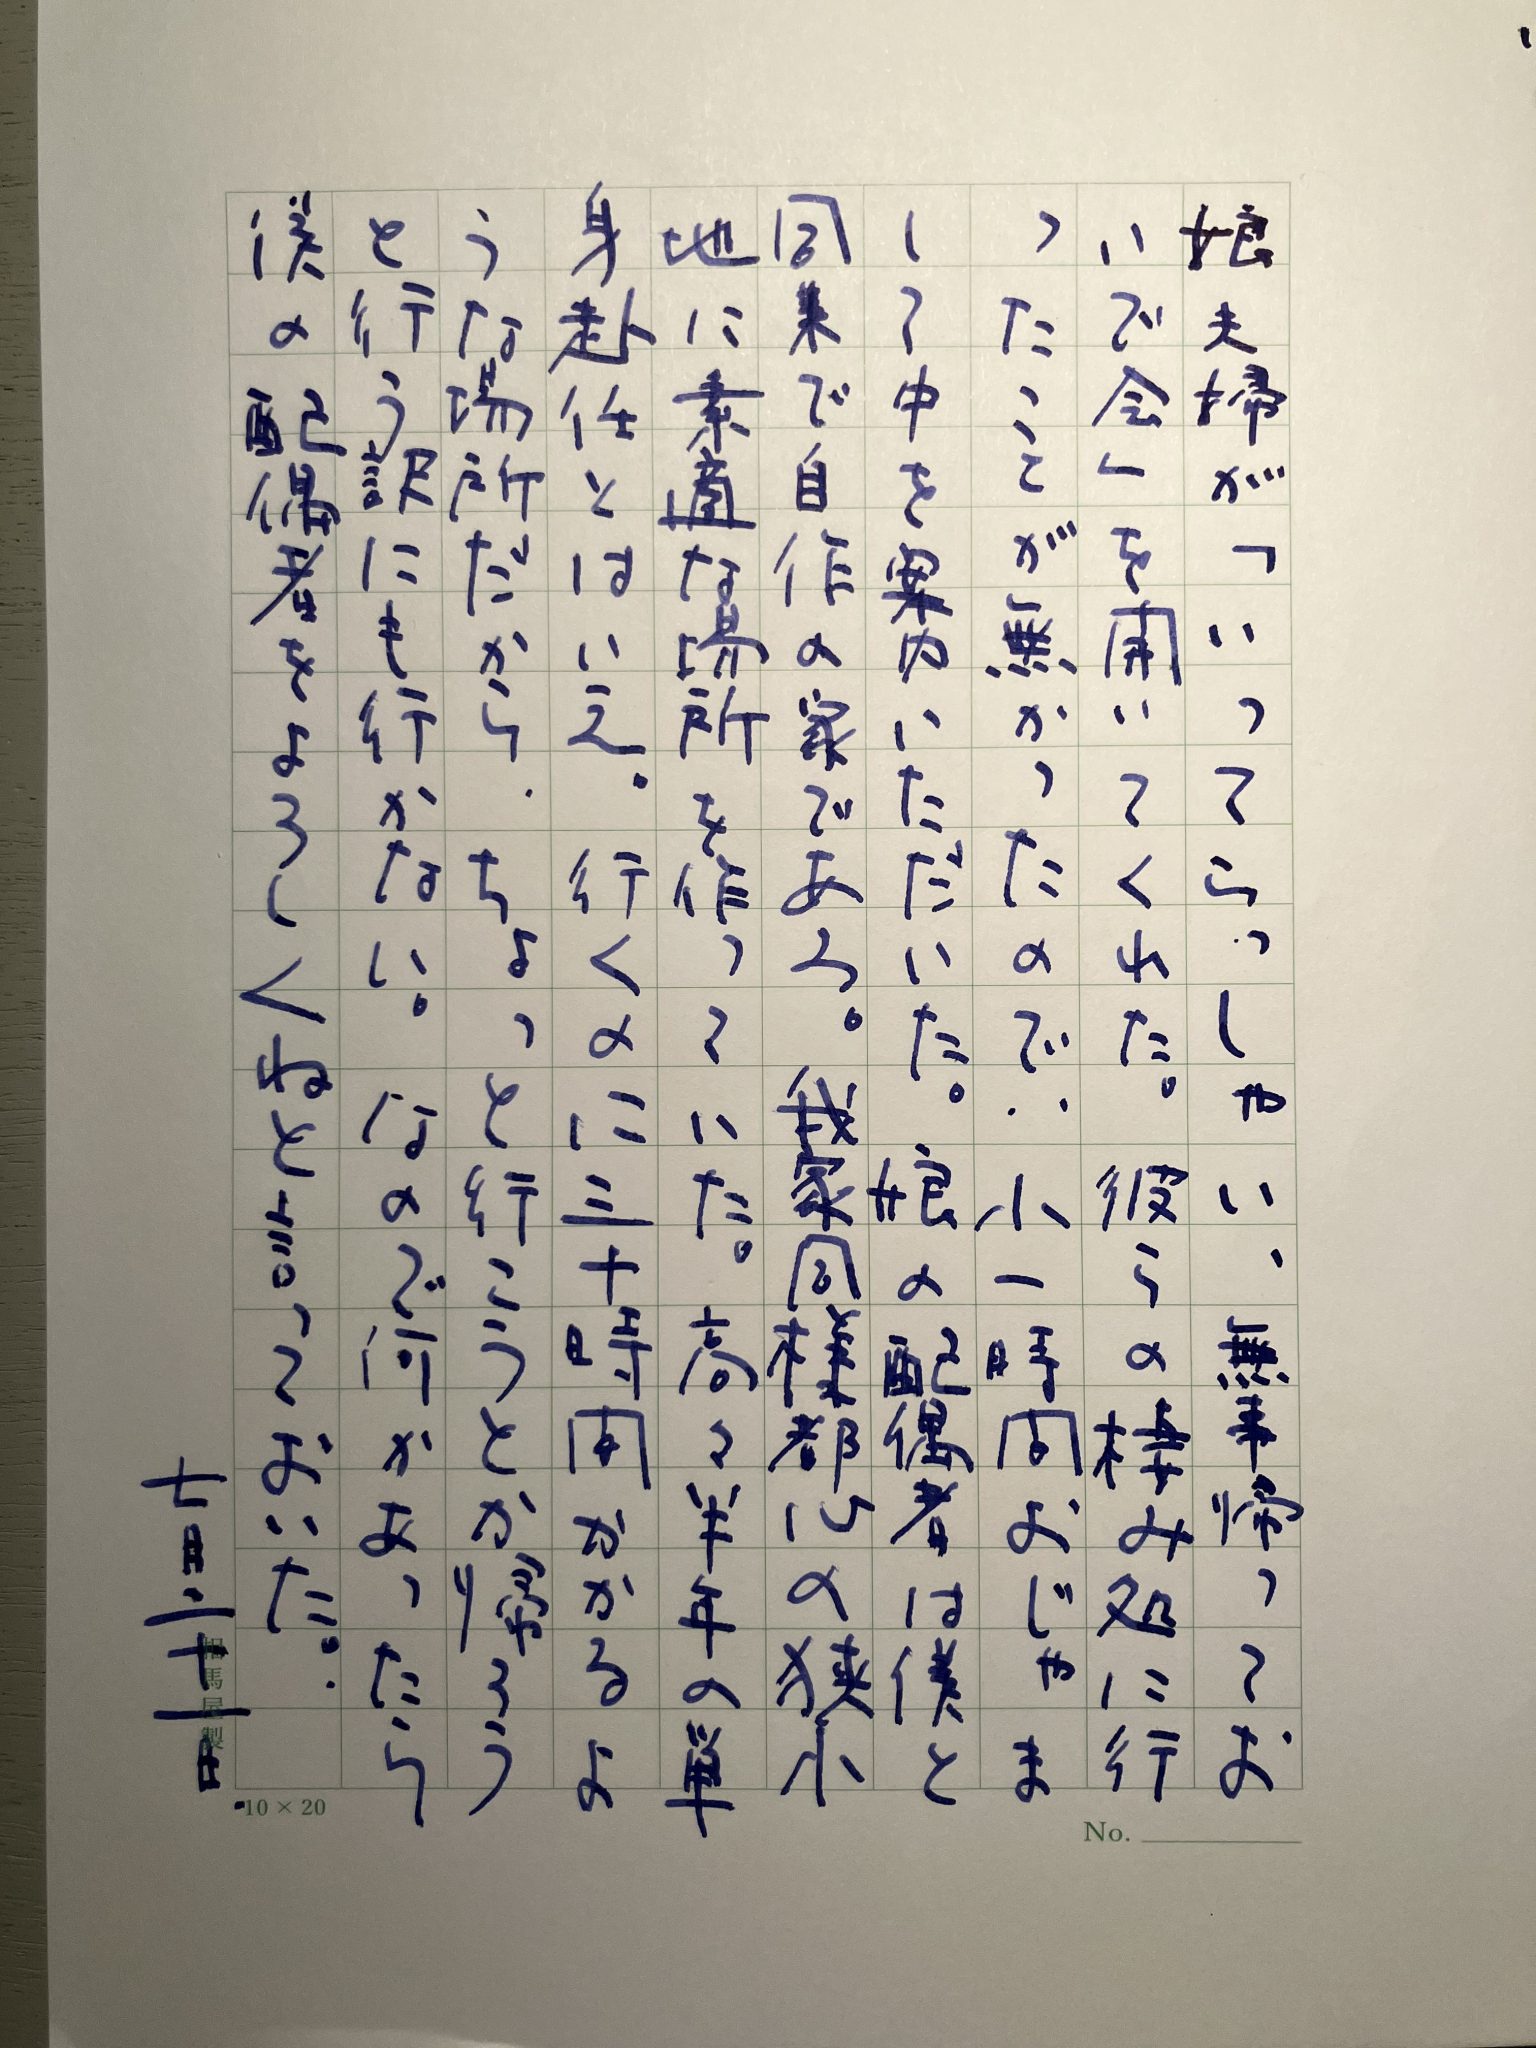 娘夫婦が「いってらっしゃい、無事帰ってお
いで会」を開いてくれた。彼らの棲み処に行
ったことが無かったので、小一時間おじゃま
して中を案内いただいた。娘の配偶者は僕と
同業で自作の家である。我家同様都心の狭小
地に素適な場所を作っていた。高々半年の単
身赴任とはいえ。行くのに三十時間かかるよ
うな場所だから、ちょっと行こうとか帰ろう
と行う訳にも行かない。なので何かあったら
僕の配偶者をよろしくねと言っておいた。
七月二十一日
相馬屋製
10×20
No.